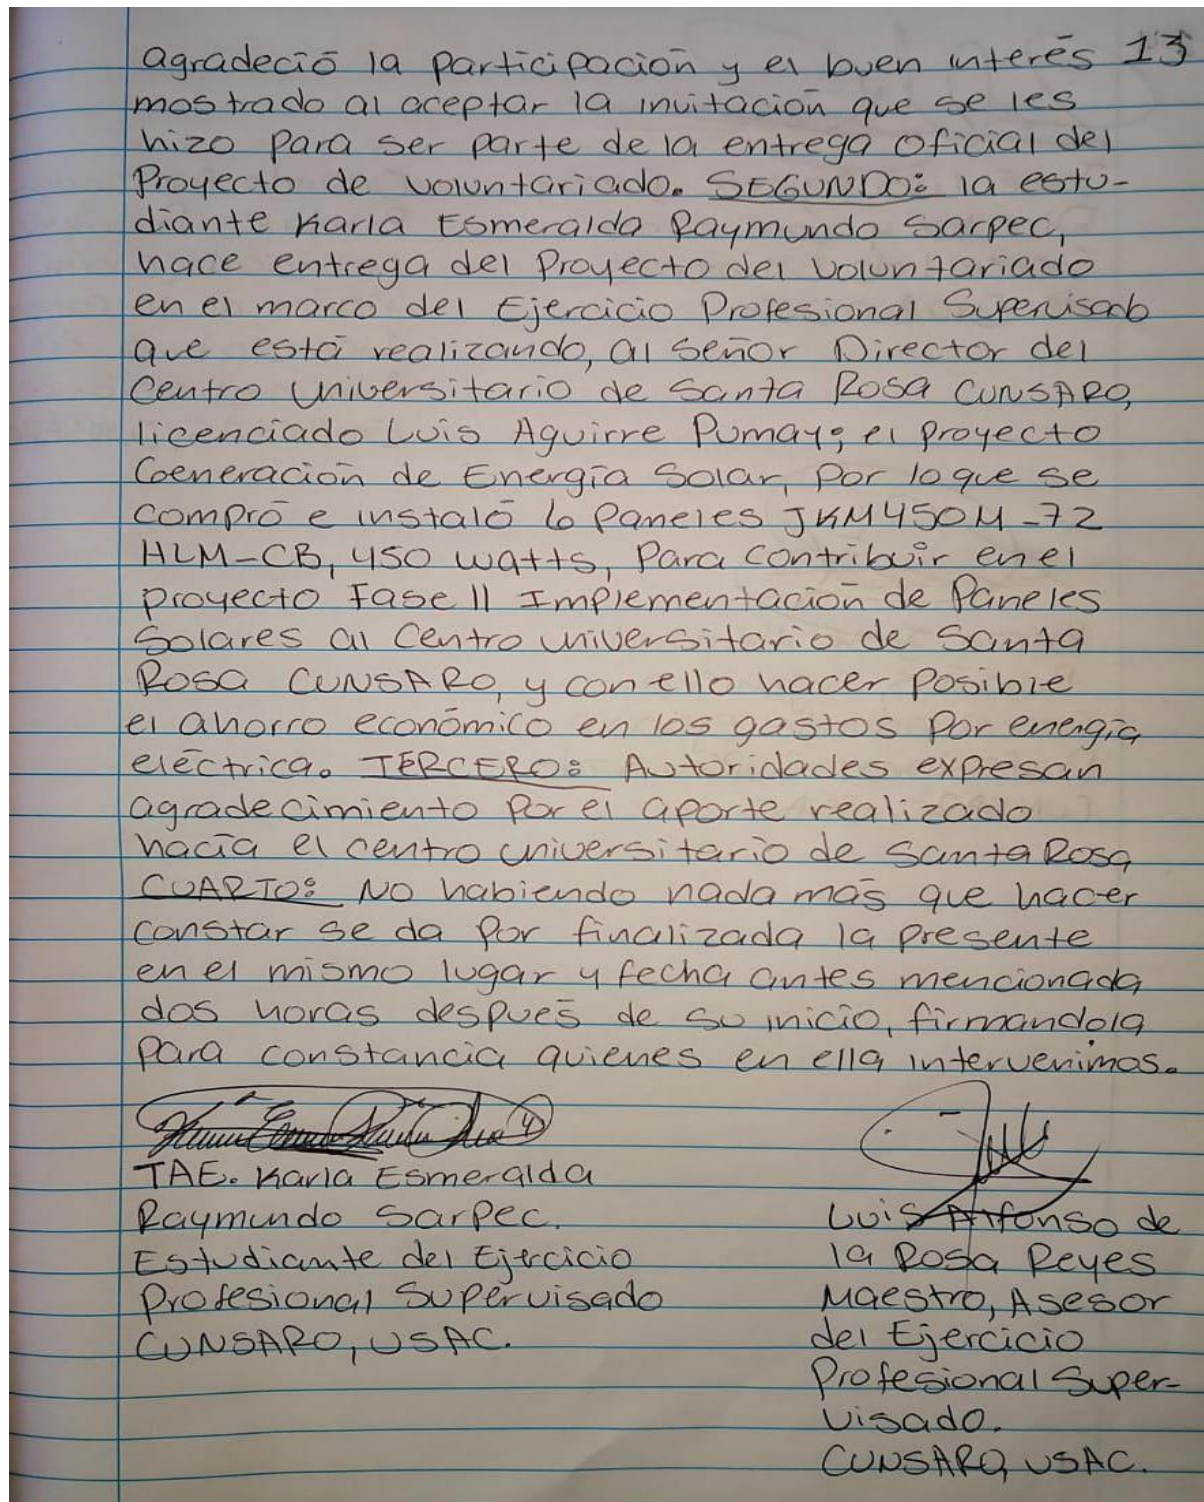 agradeció la participación y el buen interés 13
mostrado al aceptar la invitación que se les
hizo para ser parte de la entrega oficial del
Proyecto de voluntariado. SEGUNDO: la estu-
diante Karla Esmeralda Raymundo Sarpec,
hace entrega del Proyecto del voluntariado
en el marco del Ejercicio Profesional Supervisado
que está realizando, al Señor Director del
Centro Universitario de Santa Rosa CUNSARO,
licenciado Luis Aguirre Pumay; el proyecto
Generación de Energía Solar, por lo que se
compró e instaló 6 Paneles JKM450M-72
HLM-CB, 450 watts, Para contribuir en el
proyecto Fase II Implementación de Paneles
Solares al Centro universitario de Santa
Rosa CUNSARO, y con ello hacer posible
el ahorro económico en los gastos por energía
eléctrica. TERCERO: Autoridades expresan
agradecimiento por el aporte realizado
hacía el centro universitario de Santa Rosa
CUARTO: No habiendo nada más que hacer
constar se da por finalizada la presente
en el mismo lugar y fecha antes mencionada
dos horas después de su inicio, firmandola
para constancia quienes en ella intervenimos.
TAE. Karla Esmeralda
Raymundo Sarpec.
Estudiante del Ejercicio
Profesional Supervisado
CUNSARO, USAC.
Luis Alfonso de
la Rosa Reyes
Maestro, Asesor
del Ejercicio
Profesional Super-
visado.
CUNSARO, USAC.